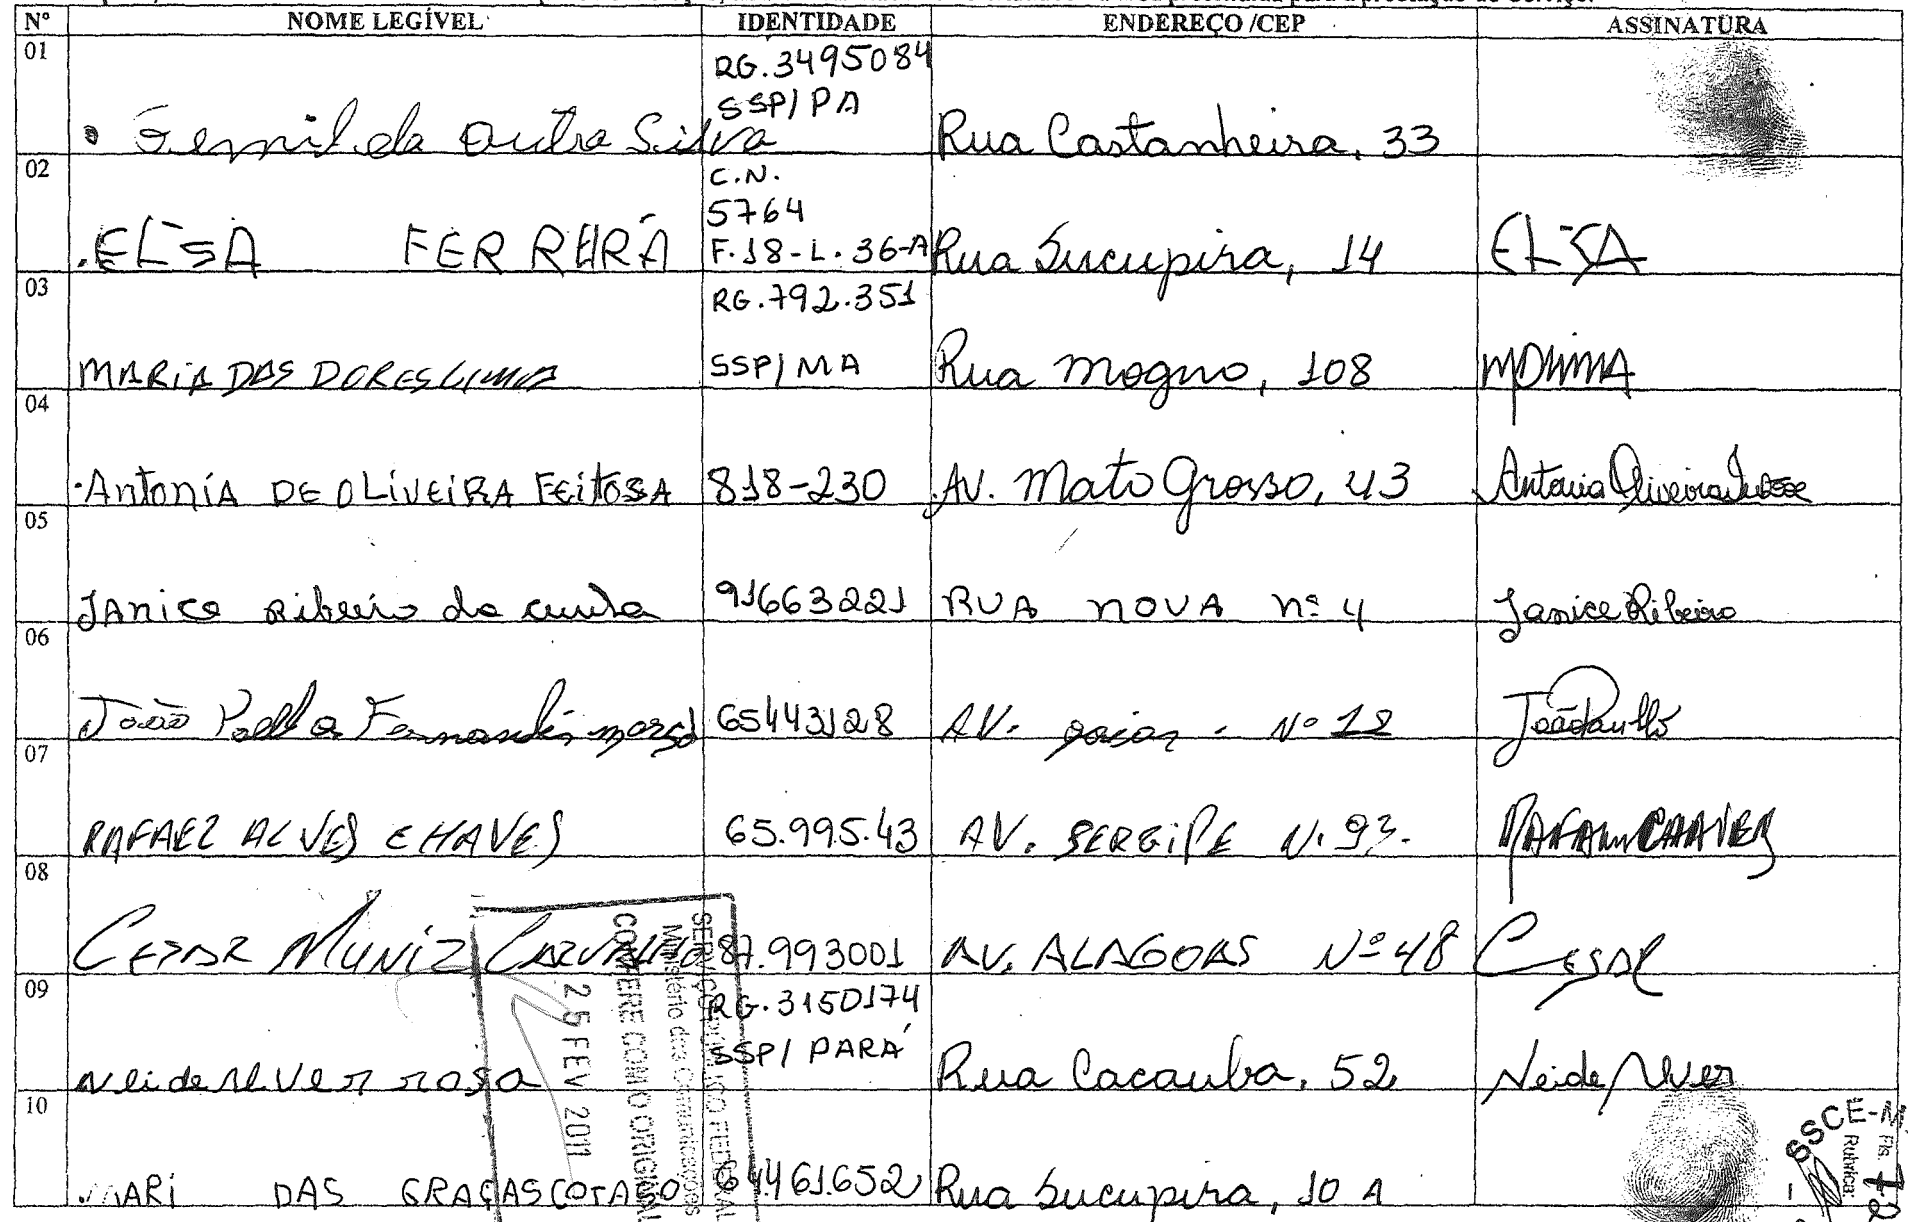 Nº NOME LEGÍVEL IDENTIDADE ENDEREÇO /CEP ASSINATURA
01
RG.3495084
SSP/PA
Silva Rua Castanheira, 33
02
C.N.
5764
ELSA FERREIRA F.18-L.36-A Rua Sucupira, 14 ELSA
03
RG.792.351
MARIA DAS DORES LIMA SSP/MA Rua Mogno, 108
04
Antonia DE OLIVEIRA FEITOSA 818-230 AV. Mato Grosso, 43 Antonia Oliveira
05
JAnice Ribeiro da cunha 91663221 RUA NOVA nº 4 Janice Ribeiro
06
João Fernandes 65443128 AV. goias - Nº 12 João Paullo
07
RAFAEL ALVES CHAVES 65.995.43 AV. SERGIPE N. 93. RAFAEL CHAVES
08
CESAR MUNIZ CARVALHO 87.993001 AV. ALAGOAS Nº 48 CESAR
09
RG.3150174
SSP/ PARÁ
Neide Alves rosa Rua Cacauba, 52 Neide Alves
10
MARI DAS GRAÇAS 64461.652 Rua Sucupira, 10 A
SERVIÇO PÚBLICO FEDERAL
Ministério das Comunicações
CONFERE COM O ORIGINAL
25 FEV 2011
SSCE-M
Fls.
Rubrica: